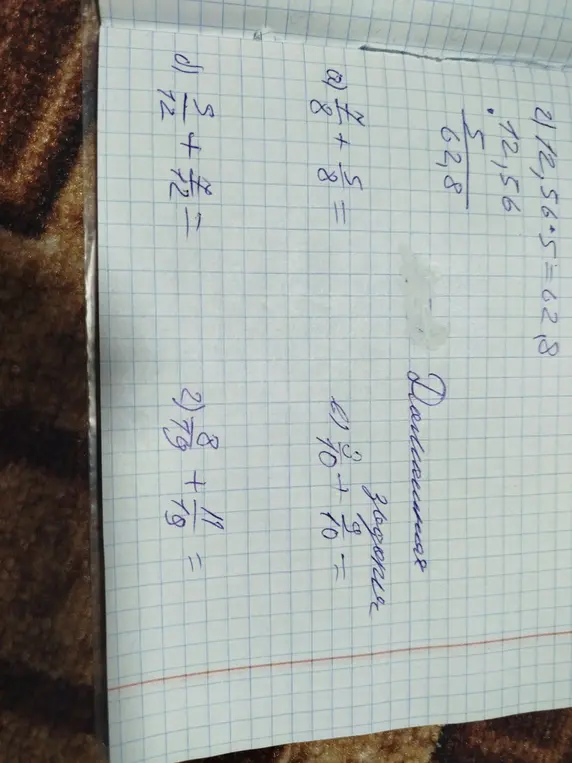 г) 12,56·5=62,8
· 12,56
5
62,8
Домашняя
задония
а) 7/8 + 5/8 = в) 3/10 + 9/10 =
б) 5/12 + 7/12 = г) 8/19 + 11/19 =